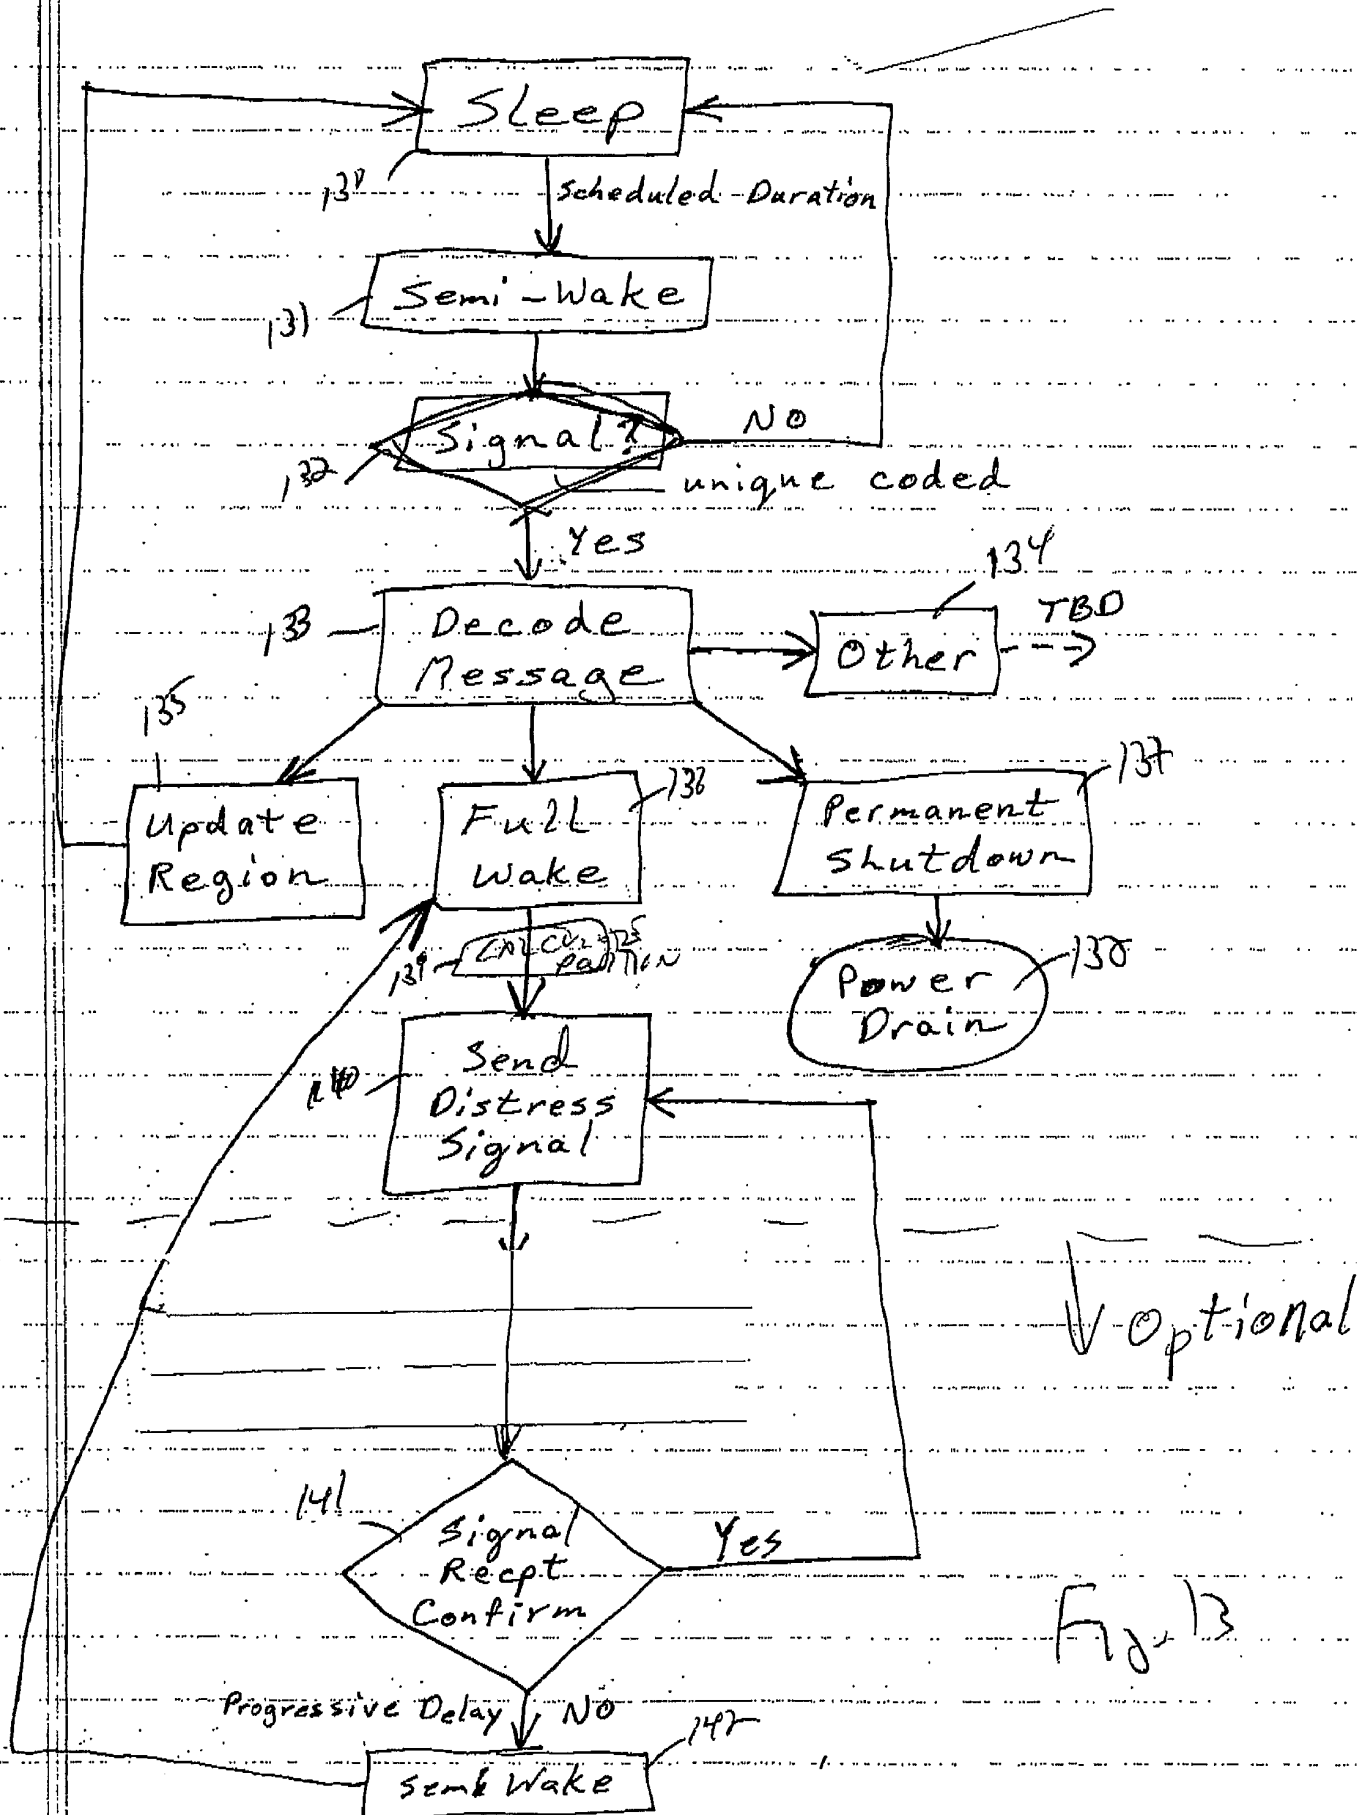 Sleep
130
Scheduled Duration
Semi-Wake
131
Signal?
NO
132
unique coded
Yes
134
133
Decode
Message
Other
TBD
135
Update
Region
136
Full
Wake
137
Permanent
Shutdown
139
CALCULATES
POSITION
138
Power
Drain
140
Send
Distress
Signal
Optional
141
Signal
Recpt
Confirm
Yes
Fig. 13
Progressive Delay
NO
142
Semi Wake